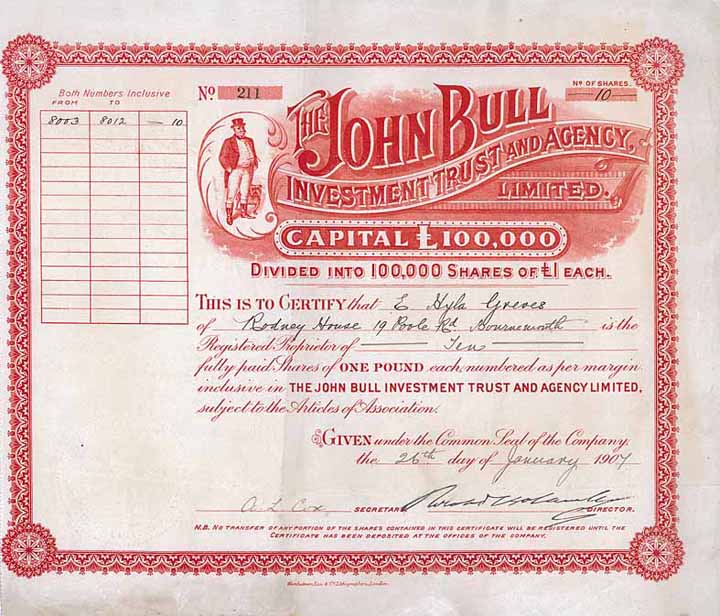 Both Numbers Inclusive
FROM TO
8003 8012 — 10
No 211
No OF SHARES.
10
THE JOHN BULL
INVESTMENT TRUST AND AGENCY,
LIMITED.
CAPITAL £100,000
DIVIDED INTO 100,000 SHARES OF £1 EACH.
THIS IS TO CERTIFY that E Hyla Greves
of Rodney House 19 Poole Rd Bournemouth is the
Registered Proprietor of Ten
fully paid Shares of ONE POUND each, numbered as per margin
inclusive in THE JOHN BULL INVESTMENT TRUST AND AGENCY LIMITED,
subject to the Articles of Association.
GIVEN under the Common Seal of the Company.
the 26th day of January 1907
A. L. Cox SECRETARY DIRECTOR.
N.B. NO TRANSFER OF ANY PORTION OF THE SHARES CONTAINED IN THIS CERTIFICATE WILL BE REGISTERED UNTIL THE
CERTIFICATE HAS BEEN DEPOSITED AT THE OFFICES OF THE COMPANY.